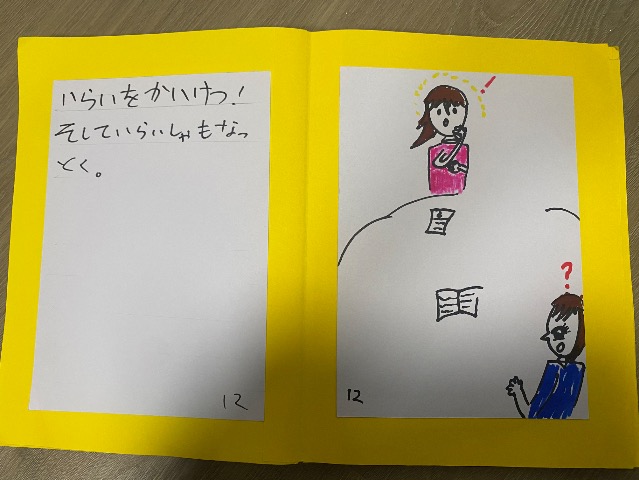 いらいをかいけつ!
そしていらいしゃもなっ
とく。
12
!
?
12